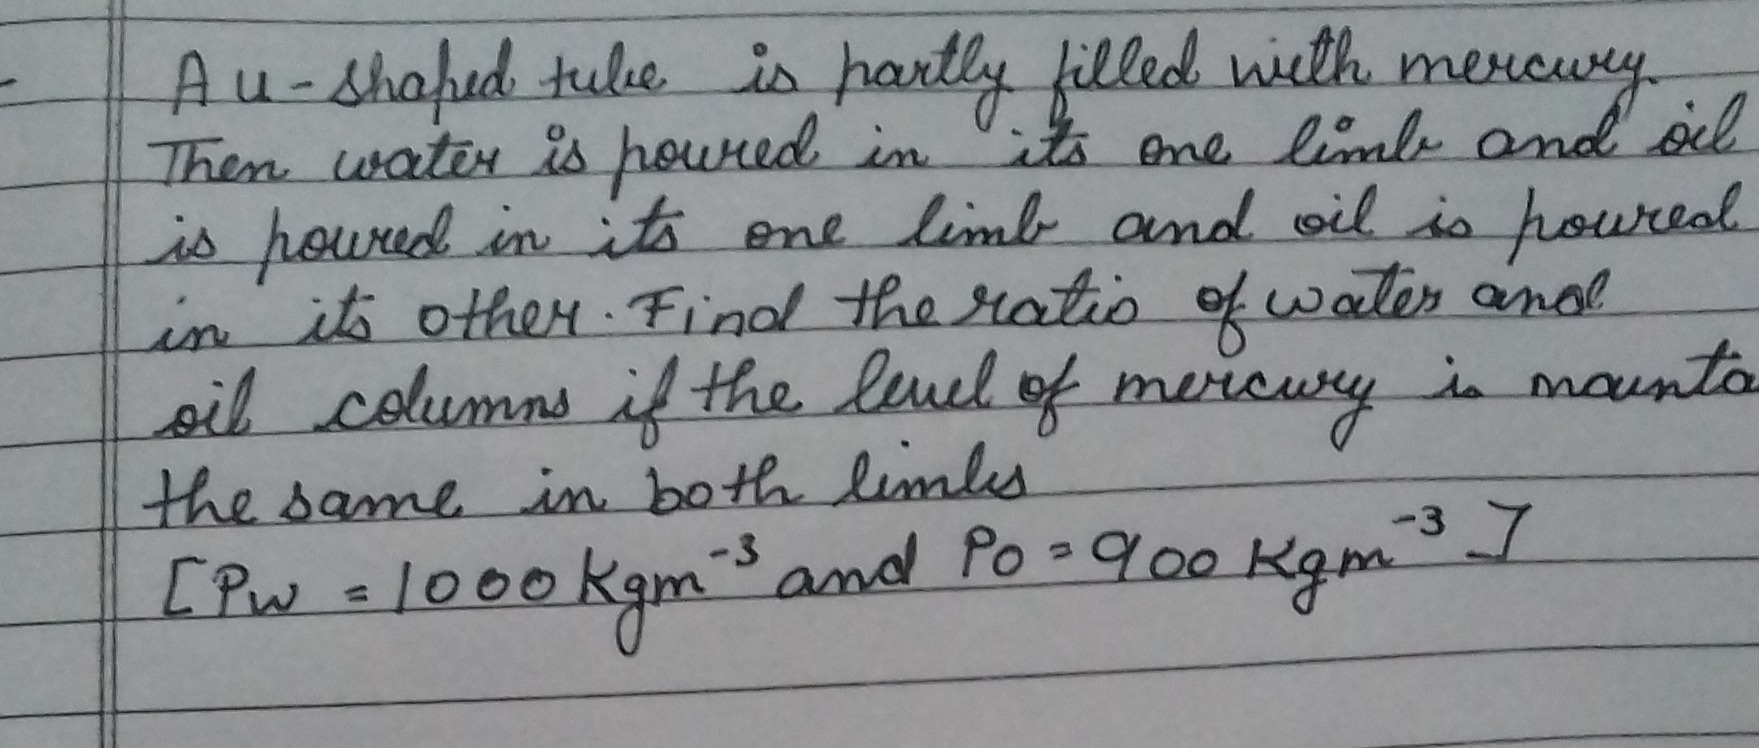 A u-shaped tube is partly filled with mercury.
Then water is poured in its one limb and oil
is poured in its one limb and oil is poured
in its other. Find the ratio of water and
oil columns if the level of mercury is mounta
the same in both limbs
[Pw = 1000 Kgm⁻³ and Po = 900 Kgm⁻³]